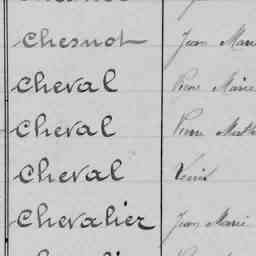 Chesnot Jean Marie
Cheval Pierre Marie
Cheval Pierre
Cheval
Chevalier Jean Marie